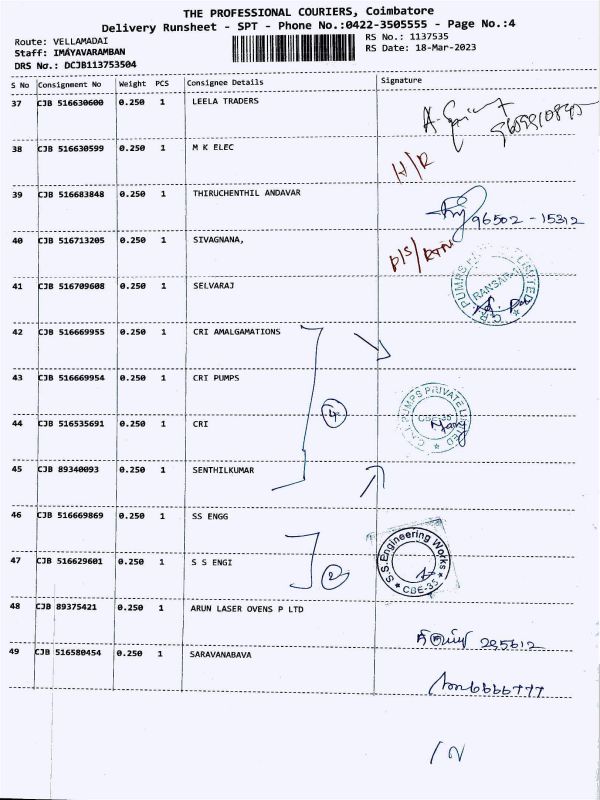 THE PROFESSIONAL COURIERS, Coimbatore
Delivery Runsheet - SPT - Phone No.:0422-3505555 - Page No.:4
Route: VELLAMADAI RS No.: 1137535
Staff: IMAYAVARAMBAN RS Date: 18-Mar-2023
DRS No.: DCJB113753504
S No Consignment No Weight PCS Consignee Details Signature
37 CJB 516630600 0.250 1 LEELA TRADERS
38 CJB 516630599 0.250 1 M K ELEC H/R
39 CJB 516683848 0.250 1 THIRUCHENTHIL ANDAVAR 96502-15312
40 CJB 516713205 0.250 1 SIVAGNANA,
41 CJB 516709608 0.250 1 SELVARAJ
42 CJB 516669955 0.250 1 CRI AMALGAMATIONS
43 CJB 516669954 0.250 1 CRI PUMPS
4
C.R.I. PUMPS PRIVATE LIMITED
CBE-35
44 CJB 516535691 0.250 1 CRI
45 CJB 89340093 0.250 1 SENTHILKUMAR
46 CJB 516669869 0.250 1 SS ENGG
47 CJB 516629601 0.250 1 S S ENGI
2
S.S.Engineering Works
CBE-35
48 CJB 89375421 0.250 1 ARUN LASER OVENS P LTD
49 CJB 516580454 0.250 1 SARAVANABAVA